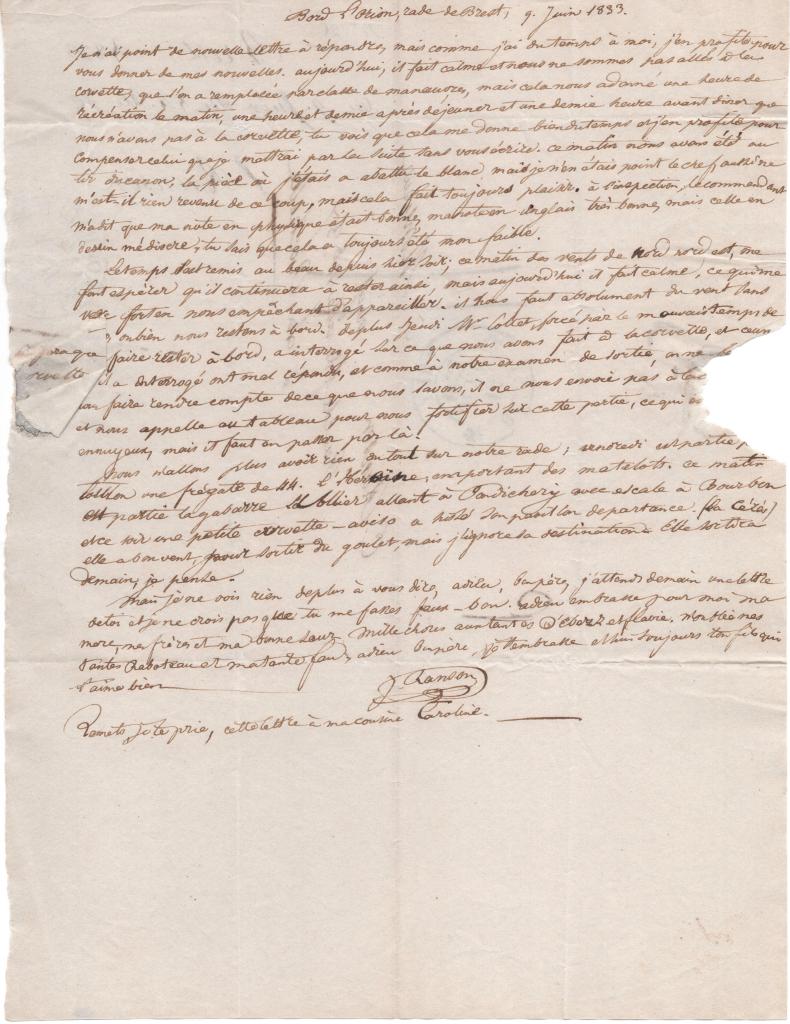 Bord L'Orion, rade de Brest, 9. Juin 1833.
Je n'ai point de nouvelle lettre à répondre, mais comme j'ai du temps à moi, j'en profite pour
vous donner de mes nouvelles. aujourd'hui, il fait calme et nous ne sommes pas allés à la
corvette, que l'on a remplacée par classe de manœuvre, mais cela nous a donné une heure de
récréation le matin, une heure et demie après déjeuner et une demie heure avant diner que
nous n'avons pas à la corvette, tu vois que cela me donne bien du temps et j'en profite pour
compenser celui que je mettrai par la suite sans vous écrire. ce matin nous avons été au
tir du canon, la pièce où j'étais a abattu le blanc, mais je n'en étais point le chef aussi ne
m'est-il rien revenu de ce coup, mais cela fait toujours plaisir. à l'inspection, le commandant
m'a dit que ma note en physique était bonne, ma note en anglais très bonne, mais celle en
dessin médiocre; tu sais que cela a toujours été mon faible.
Le temps s'est remis au beau depuis hier soir; ce matin des vents de nord nord est, me
font espérer qu'il continuera à rester ainsi, mais aujourd'hui il fait calme, ce qui me
vexe fort en nous empêchant d'appareiller. il nous faut absolument du vent sans
ou bien nous restons à bord. de plus Jeudi Mr Lollet forcé par le mauvais temps de
faire rester à bord, a interrogé sur ce que nous avons fait à la corvette, et ceux
il a interrogé ont mal répondu, et comme à notre examen de sortie, on ne
faire rendre compte de ce que nous savons, il ne nous envoie pas à la
et nous appelle au tableau pour nous fortifier sur cette partie, ce qui
ennuyeux, mais il faut en passer par là.
Nous n'allons plus avoir rien du tout sur notre rade; vendredi est partie
une frégate de 44. L'Hermione, emportant des matelots. ce matin
est partie la gabarre L'Allier allant à Pondichery avec escale à Bourbon
et ce soir une petite corvette-aviso a hissé son pavillon de partance. (la Cérès)
elle a bon vent, pour sortir du goulet, mais j'ignore sa destination. Elle sortira
demain, je pense.
Mais je ne vois rien de plus à vous dire, adieu, bon père, j'attends demain une lettre
de toi et je ne crois pas que tu me fasses faux-bon. adieu embrasse pour moi ma
mère, mes frères et ma bonne sœur. Mille choses aux tantes D'Eborz et flavie. n'oublie mes
tantes Raboteau et ma tante fanny, adieu bon père, je t'embrasse et suis toujours ton fils qui
t'aime bien
J. Ranson
Remets, je te prie, cette lettre à ma cousine Caroline.